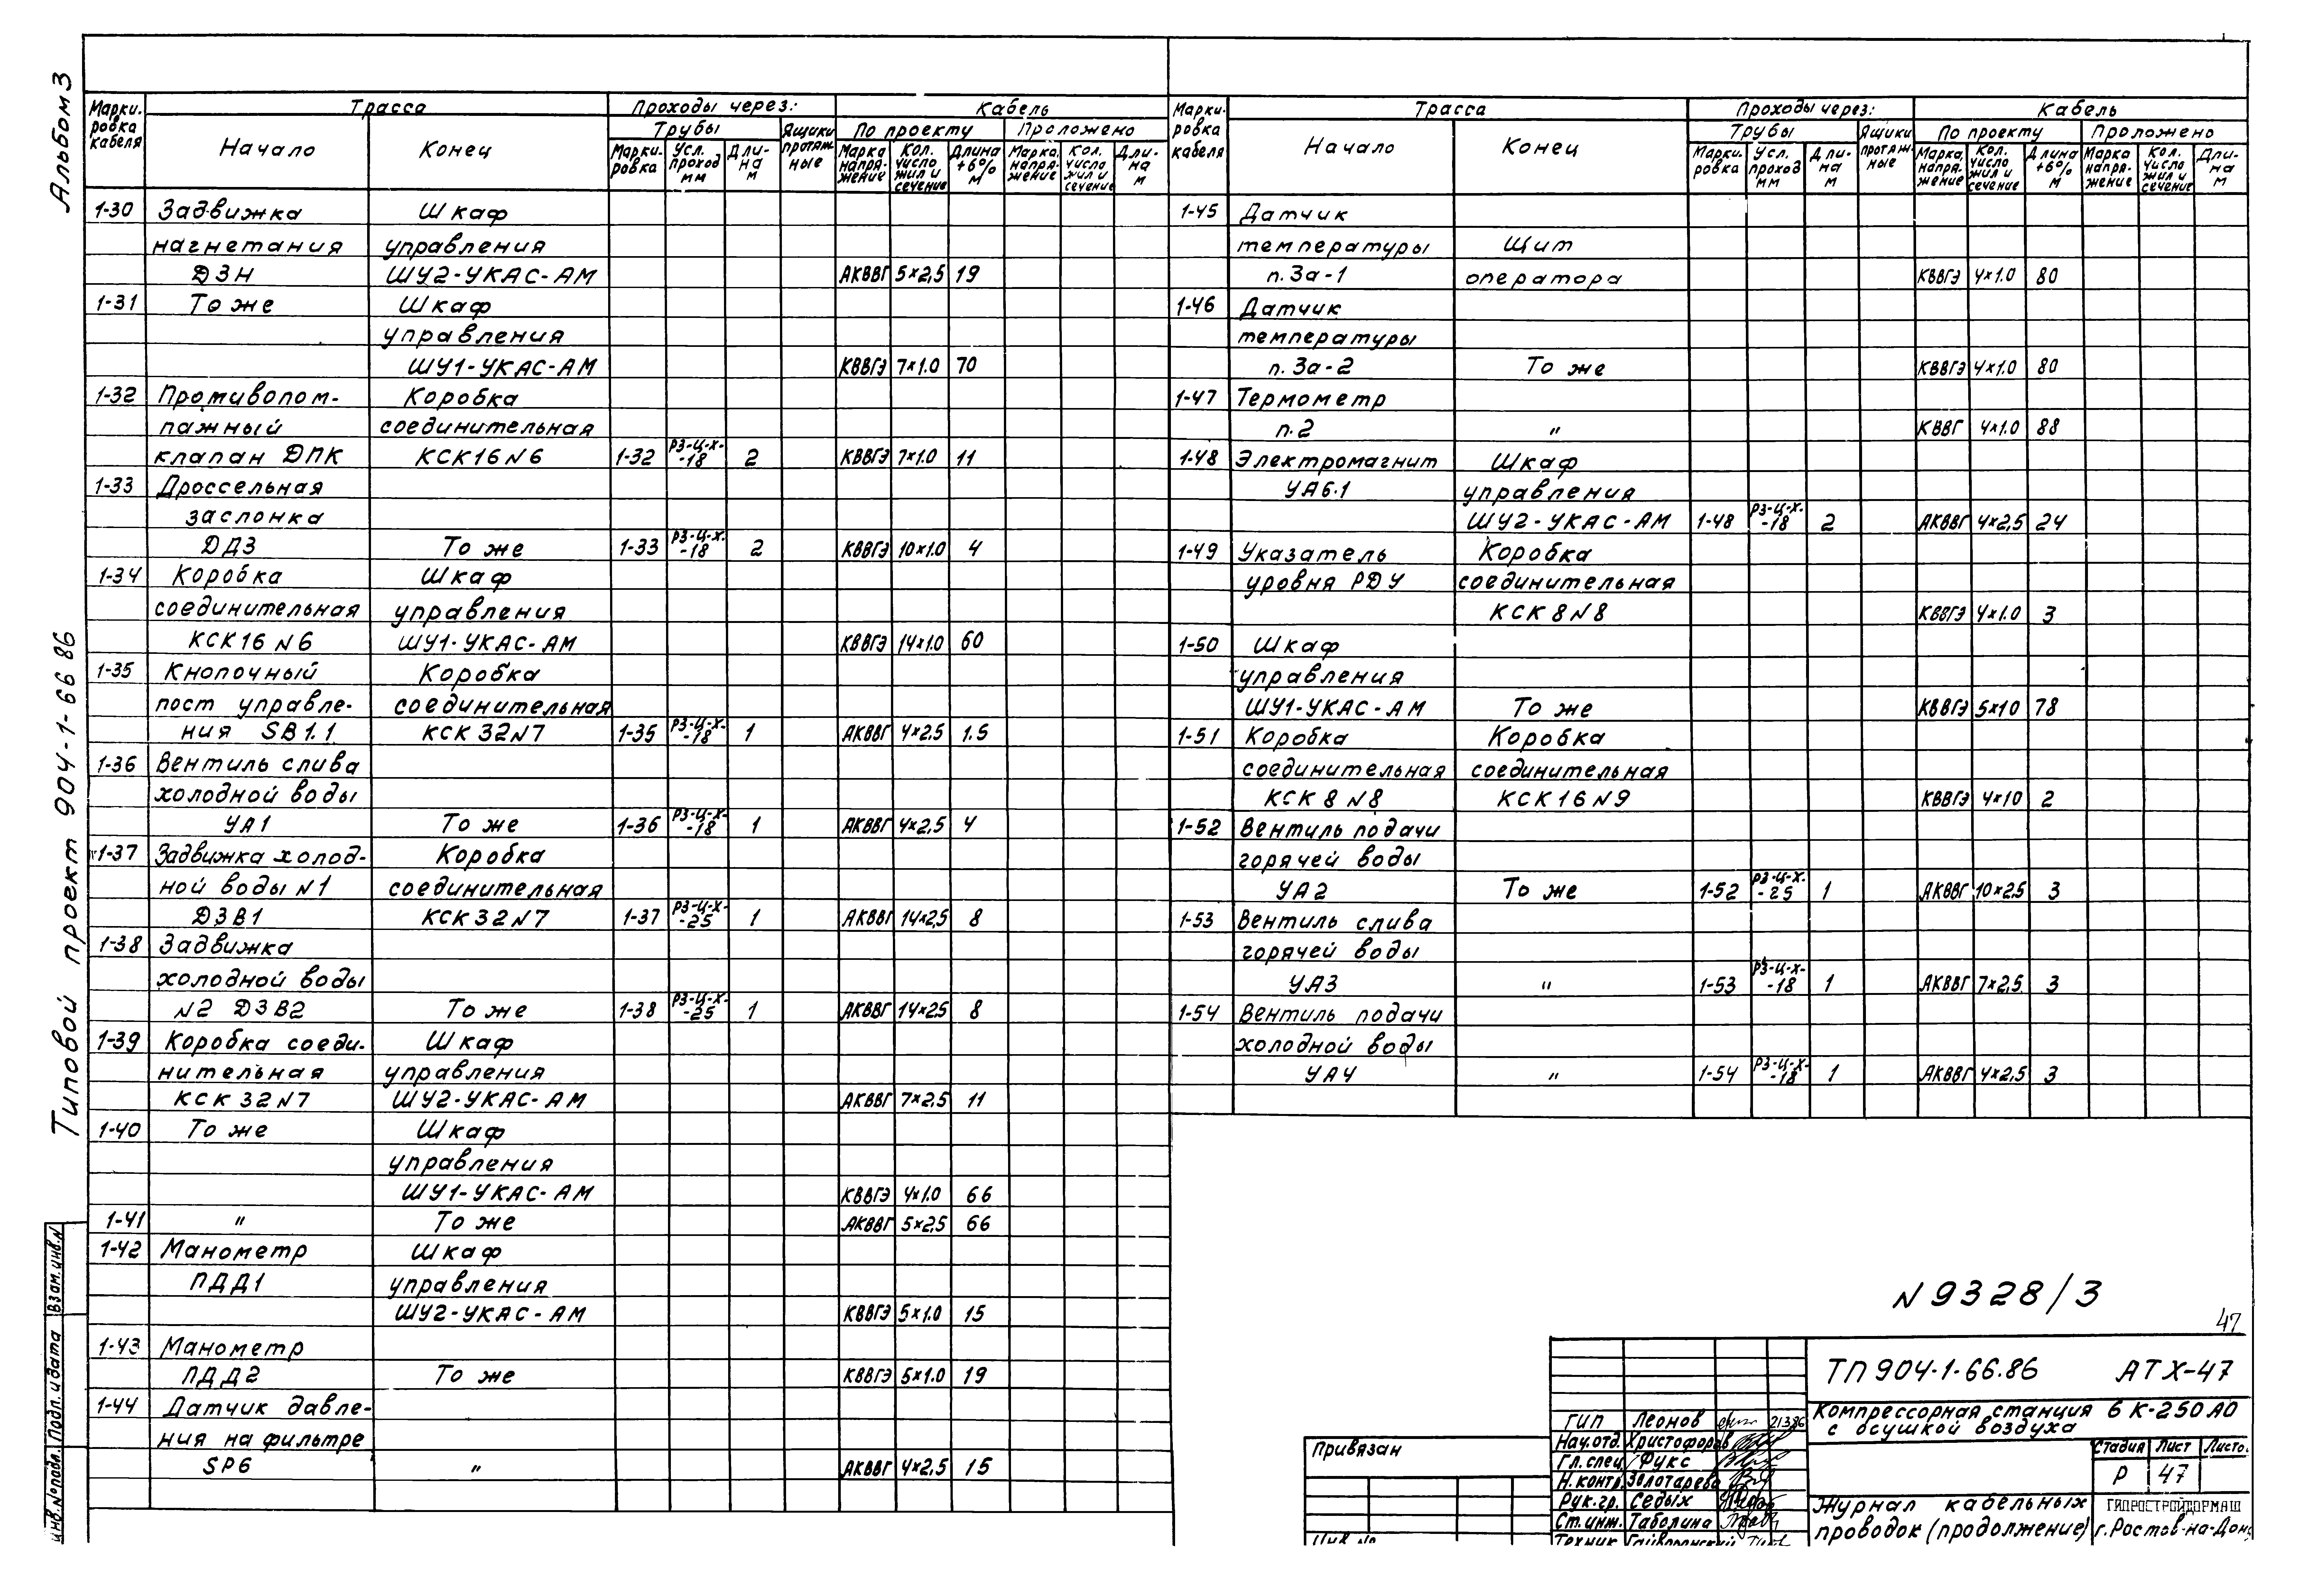 Альбом 3
Типовой проект 904-1-66 86
Инв.№ подл. Подп. и дата Взам.инв.N
Марки- ровка кабеля
Трасса
Начало Конец
Проходы через:
Трубы
Марки- ровка Усл. проход мм Дли- на м
Ящики протяж- ные
Кабель
По проекту Проложено
Марка, напря- жение Кол. число жил и сечение Длина +6% м Марка, напря- жение Кол. число жил и сечение Дли- на м
1-30 Задвижка Шкаф
нагнетания управления
ДЗН ШУ2-УКАС-АМ АКВВГ 5×2,5 19
1-31 То же Шкаф
управления
ШУ1-УКАС-АМ КВВГЭ 7×1.0 70
1-32 Противопом- Коробка
пажный соединительная
клапан ДПК КСК16 N6 1-32 РЗ-Ц-Х- -18 2 КВВГЭ 7×1.0 11
1-33 Дроссельная
заслонка
ДДЗ То же 1-33 РЗ-Ц-Х- -18 2 КВВГЭ 10×1.0 4
1-34 Коробка Шкаф
соединительная управления
КСК16 N6 ШУ1-УКАС-АМ КВВГЭ 14×1.0 60
1-35 Кнопочный Коробка
пост управле- соединительная
ния SB1.1 КСК 32N7 1-35 РЗ-Ц-Х- -18 1 АКВВГ 4×2,5 1.5
1-36 Вентиль слива
холодной воды
УА1 То же 1-36 РЗ-Ц-Х- -18 1 АКВВГ 4×2,5 4
1-37 Задвижка холод- Коробка
ной воды N1 соединительная
ДЗВ1 КСК 32N7 1-37 РЗ-Ц-Х- -25 1 АКВВГ 14×2,5 8
1-38 Задвижка
холодной воды
N2 ДЗВ2 То же 1-38 РЗ-Ц-Х- -25 1 АКВВГ 14×2,5 8
1-39 Коробка соеди- Шкаф
нительная управления
КСК 32N7 ШУ2-УКАС-АМ АКВВГ 7×2,5 11
1-40 То же Шкаф
управления
ШУ1-УКАС-АМ КВВГЭ 4×1.0 66
1-41 " То же АКВВГ 5×2,5 66
1-42 Манометр Шкаф
ПДД1 управления
ШУ2-УКАС-АМ КВВГЭ 5×1.0 15
1-43 Манометр
ПДД2 То же КВВГЭ 5×1.0 19
1-44 Датчик давле-
ния на фильтре
SP6 " АКВВГ 4×2,5 15
Марки- ровка кабеля
Трасса
Начало Конец
Проходы через:
Трубы
Марки- ровка Усл. проход мм Дли- на м
Ящики протяж- ные
Кабель
По проекту Проложено
Марка, напря- жение Кол. число жил и сечение Длина +6% м Марка напря- жение Кол. число жил и сечение Дли- на м
1-45 Датчик
температуры Щит
п.3а-1 оператора КВВГЭ 4×1.0 80
1-46 Датчик
температуры
п.3а-2 То же КВВГЭ 4×1.0 80
1-47 Термометр
п.2 " КВВГ 4×1.0 88
1-48 Электромагнит Шкаф
УА6.1 управления
ШУ2-УКАС-АМ 1-48 РЗ-Ц-Х- -18 2 АКВВГ 4×2,5 24
1-49 Указатель Коробка
уровня РДУ соединительная
КСК 8N8 КВВГЭ 4×1.0 3
1-50 Шкаф
управления
ШУ1-УКАС-АМ То же КВВГЭ 5×10 78
1-51 Коробка Коробка
соединительная соединительная
КСК 8 N8 КСК16 N9 КВВГЭ 4×10 2
1-52 Вентиль подачи
горячей воды
УА2 То же 1-52 РЗ-Ц-Х- -25 1 АКВВГ 10×2,5 3
1-53 Вентиль слива
горячей воды
УА3 " 1-53 РЗ-Ц-Х- -18 1 АКВВГ 7×2,5 3
1-54 Вентиль подачи
холодной воды
УА4 " 1-54 РЗ-Ц-Х- -18 1 АКВВГ 4×2,5 3
N 9328/3
47
ТП 904-1-66.86 АТХ-47
Компрессорная станция 6 К-250 АО
с осушкой воздуха
Стадия Лист Листо
Р 47
Журнал кабельных
проводок (продолжение)
ГИПРОСТРОЙДОРМАШ
г.Ростов-на-Дону
Привязан
Инв.No
ГИП Леонов 21.3.86
Нач.отд. Христофоров
Гл.спец. Фукс
Н.контр. Золотарева
Рук.гр. Седых
Ст.инж. Таболина
Техник Гайворонский